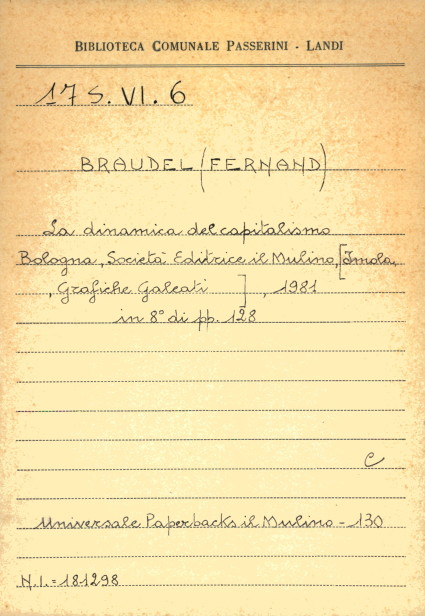 BIBLIOTECA COMUNALE PASSERINI - LANDI
17 S. VI. 6
BRAUDEL (FERNAND)
La dinamica del capitalismo
Bologna, Società Editrice il Mulino, [Imola,
, Grafiche Galeati ] , 1981
in 8° di pp. 128
C
Universale Paperbacks il Mulino - 130
N.I. = 181298